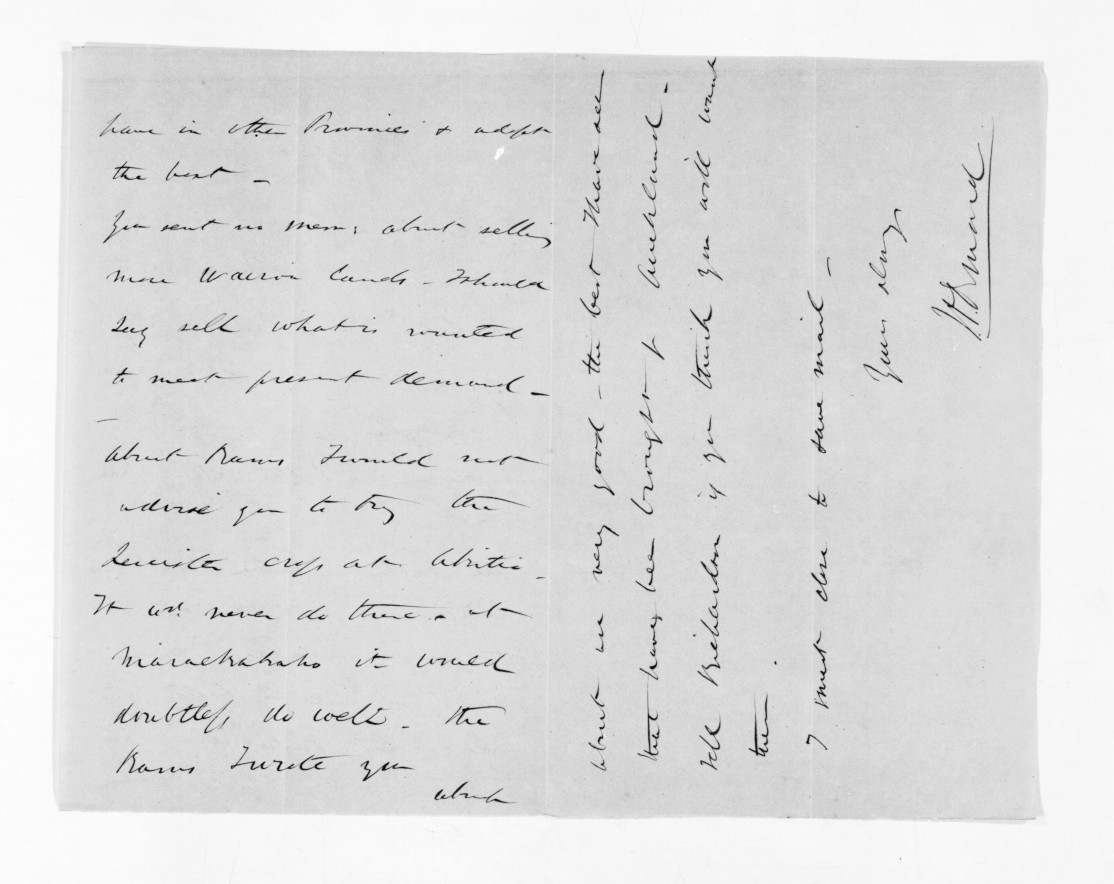 have in other Provinces & adopt
the best _
You sent no mem: about selling
more Wairoa Lands _ I should
say sell what is wanted
to meet present demand _
_
About Rams I would not
advise you to try the
Leicester cross at Akitio _
It wd. never do there & at
Maraekakaho it would
doubtless do well _ the
Rams I wrote you
about
about are very good _ the best I have see
that have bee brought f Auckland _
tell Richardson if you think you will want
them
I must close to save mail _
Yours always
J D Ormond